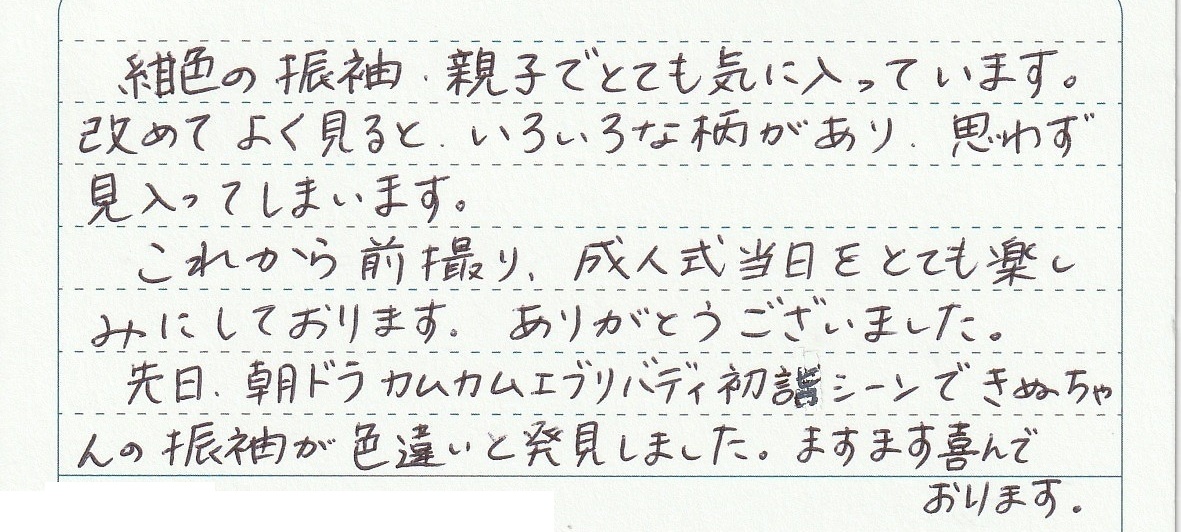 紺色の振袖、親子でとても気に入っています。
改めてよく見ると、いろいろな柄があり、思わず
見入ってしまいます。
これから前撮り、成人式当日をとても楽し
みにしております。ありがとうございました。
先日、朝ドラカムカムエブリバディ初詣シーンできぬちゃ
んの振袖が色違いと発見しました。ますます喜んで
おります。